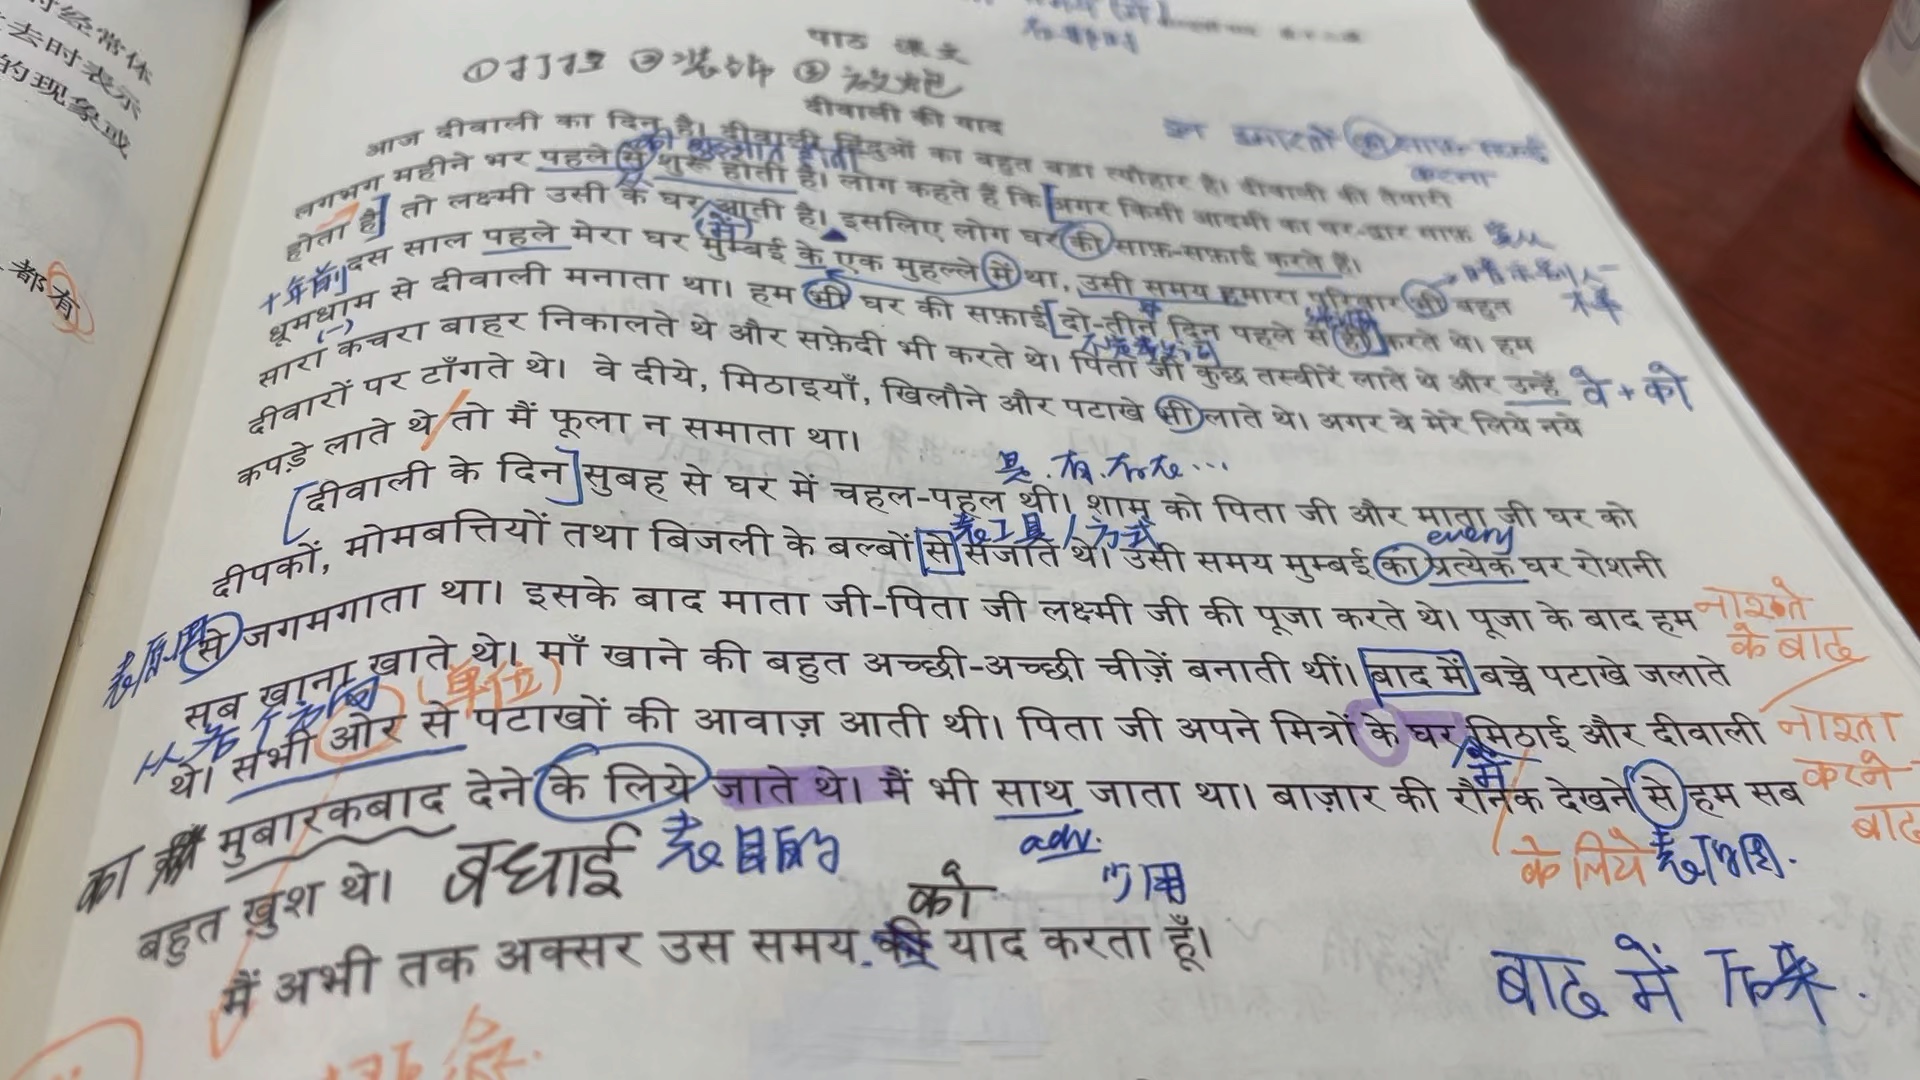 时经常体
去时表示
的现象或
都有
पाठ 课文
① 打扫 ② 装饰 ③
दीवाली की याद
आज दीवाली का दिन है। दीवाली हिंदुओं का बहुत बड़ा त्यौहार है। दीवाली की तैयारी
लगभग महीने भर पहले से शुरू होती है। लोग कहते हैं कि अगर किसी आदमी का घर-द्वार साफ़
होता है तो लक्ष्मी उसी के घर आती है। इसलिए लोग घर की साफ़-सफ़ाई करते हैं।
में
十年前
दस साल पहले मेरा घर मुम्बई के एक मुहल्ले में था, उसी समय हमारा परिवार भी बहुत
धूमधाम से दीवाली मनाता था। हम भी घर की सफ़ाई दो-तीन दिन पहले से ही करते थे। हम
सारा कचरा बाहर निकालते थे और सफ़ेदी भी करते थे। पिता जी कुछ तस्वीरें लाते थे और उन्हें वे + को
दीवारों पर टाँगते थे। वे दीये, मिठाइयाँ, खिलौने और पटाखे भी लाते थे। अगर वे मेरे लिये नये
कपड़े लाते थे तो मैं फूला न समाता था।
是.有.存在...
दीवाली के दिन सुबह से घर में चहल-पहल थी। शाम को पिता जी और माता जी घर को
表工具/方式 every
दीपकों, मोमबत्तियों तथा बिजली के बल्बों से सजाते थे। उसी समय मुम्बई का प्रत्येक घर रोशनी
表原因 से जगमगाता था। इसके बाद माता जी-पिता जी लक्ष्मी जी की पूजा करते थे। पूजा के बाद हम
नाश्ते के बाद
सब खाना खाते थे। माँ खाने की बहुत अच्छी-अच्छी चीज़ें बनाती थीं। बाद में बच्चे पटाखे जलाते
(单位)
थे। सभी ओर से पटाखों की आवाज़ आती थी। पिता जी अपने मित्रों के घर मिठाई और दीवाली
में
नाश्ता करने बाद
का मुबारकबाद देने के लिये जाते थे। मैं भी साथ जाता था। बाज़ार की रौनक देखने से हम सब
बधाई 表目的 adv. के लिये
बहुत ख़ुश थे।
को
मैं अभी तक अक्सर उस समय की याद करता हूँ।
बाद में